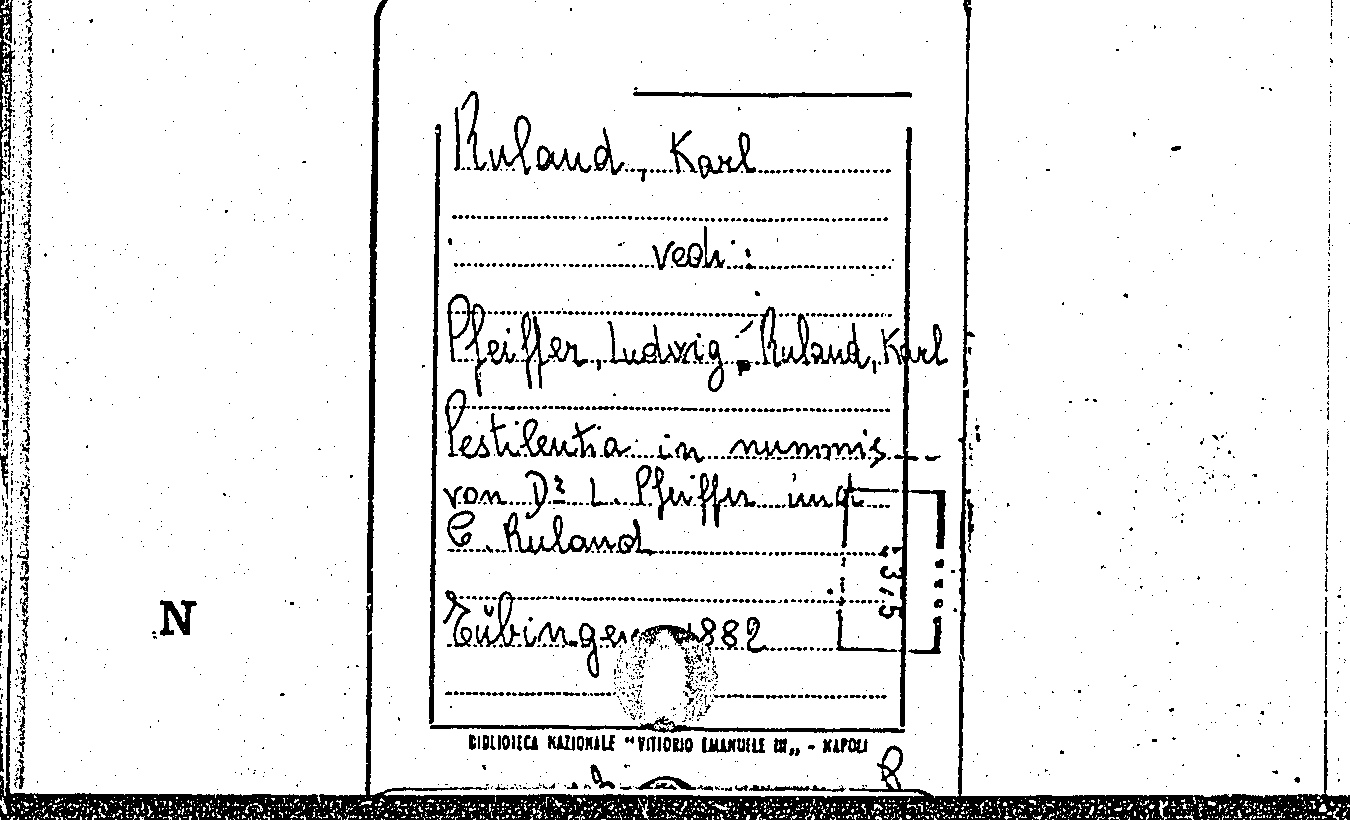 Ruland, Karl
vedi:
Pfeiffer, Ludwig - Ruland, Karl
Pestilentia in nummis...
von Dr L. Pfeiffer und
C. Ruland
Tübingen 1882
N
BIBLIOTECA NAZIONALE "VITTORIO EMANUELE III" - NAPOLI